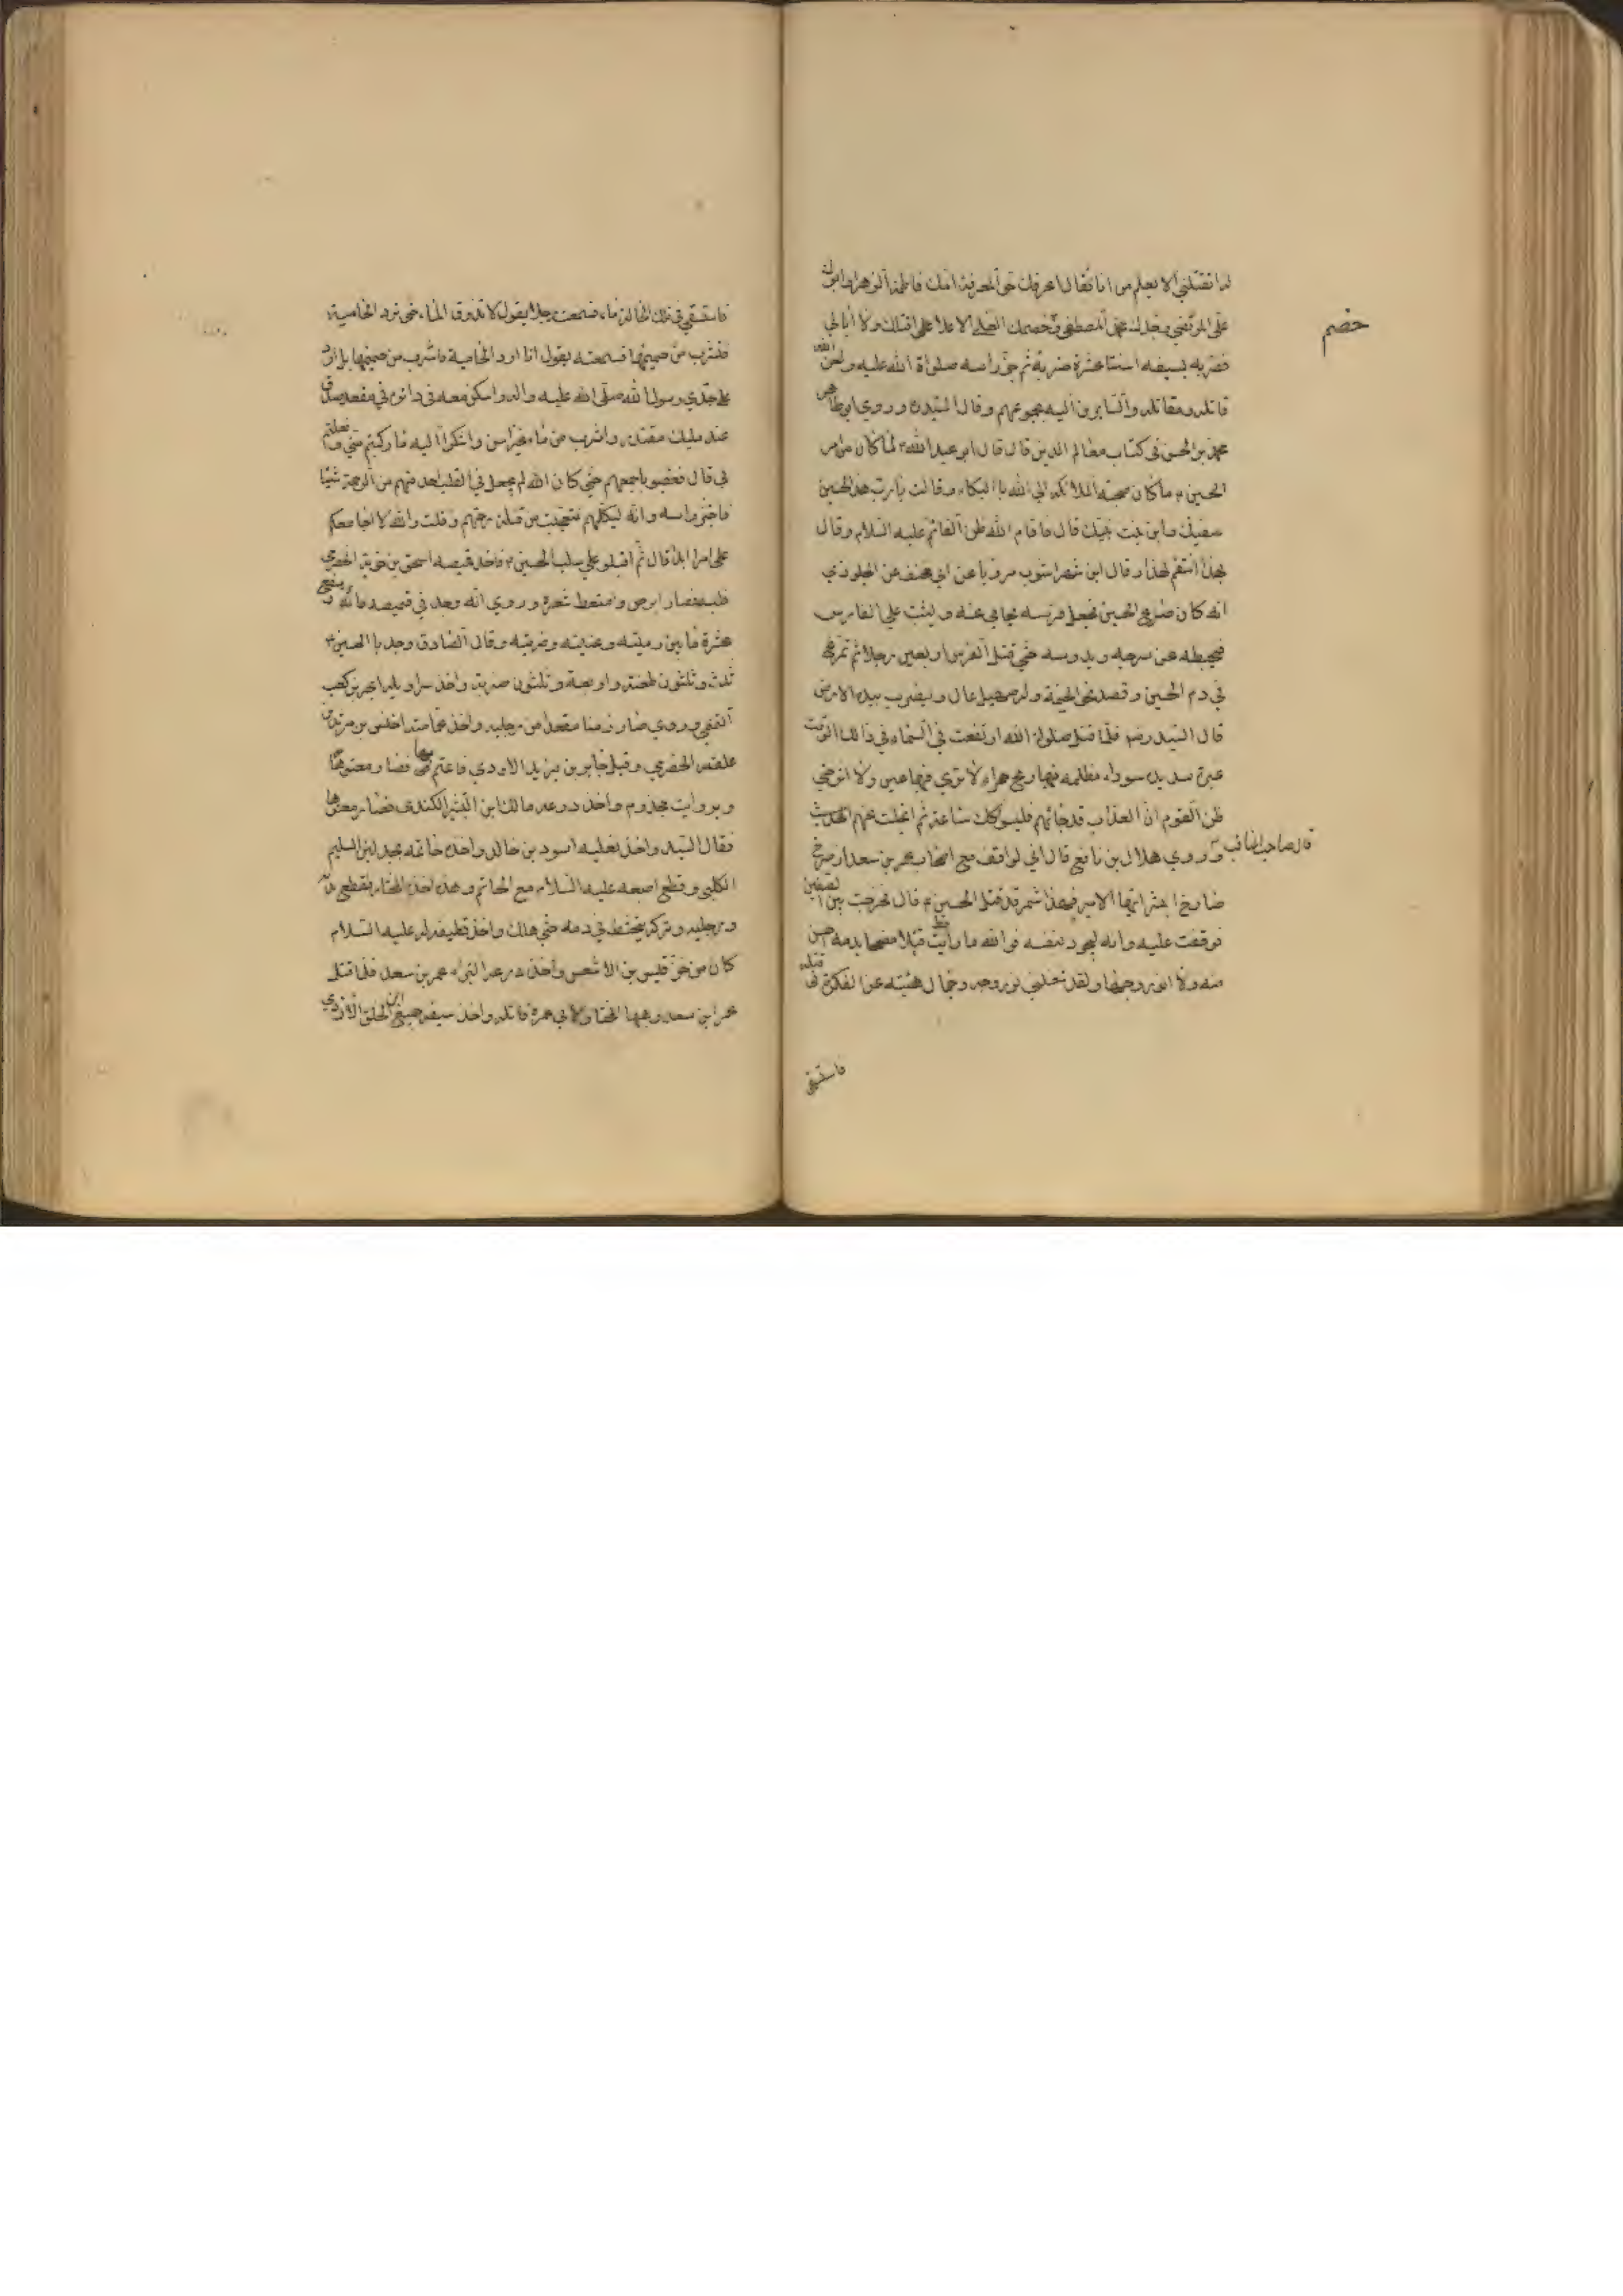 له اتقتلني الا تعلم من انا فقال اعرفك حق المعرفة امك فاطمة الزهرا وابوك
علي المرتضي وجدك محمد المصطفي وخصمك العلي الاعلا اقتلك ولا ابالي
خصم
فضربه بسيفه اثنتا عشرة ضربة ثم جز راسه صلواة الله عليه ولعن الله
قاتله ومقاتله والسايرين اليه بجموعهم وقال السيد وروي ابو طاهر
محمد بن الحسن في كتاب معالم الدين قال قال ابو عبد الله لما كان من امر
الحسين ما كان ضجت الملائكه الي الله باالبكاء وقالت يا رب هذا الحسين
صفيك وابن بنت نبيك قال فاقام الله ظل القائم عليه السلام وقال
بهذا انتقم لهذا وقال ابن شهراشوب مرويا عن ابي مخنف عن الجلودي
انه كان صرع الحسين فجعل فرسه يحامي عنه ويثب علي الفارس
فيخبطه عن سرجه ويدوسه حتي قتل الفرس اربعين رجلا ثم تمرغ
في دم الحسين وقصد نحو الخيمة وله صهيل عال ويضرب بيديه الارض
قال السيد رضه فلما قتل صلواة الله ارتفعت في السماء في ذالك الوقت
غبرة شديدة سوداء مظلمه فيها ريح حمراء لا تري فيها عين ولا اثر حتي
ظن القوم ان العذاب قد جائهم فلبثو كك ساعة ثم انجلت عنهم الحديث
قال صاحب المناقب وروي هلال بن نافع قال اني لواقف مع اصحاب عمر بن سعد اذ صرخ
صارخ ابشر ايها الامير فهذا شمر قد قتل الحسين قال فخرجت بين الصفين
فوقفت عليه وانه ليجود بنفسه فو الله ما رايت قط قتيلا مضمخا بدمه احسن
منه ولا انور وجها ولقد شغلني نور وجهه وجمال هيئته عن الفكرة في قتله
فاستسقي
فاستسقي في تلك الحالة ماء فسمعت رجلا يقول لا تذوق الماء حتي ترد الحامية
فتشرب من حميمها فسمعته يقول انا ارد الحامية فاشرب من حميمها بل ارد
علي جدي رسول الله صلي الله عليه واله واسكن معه في داره في مقعد صدق
عند مليك مقتدر واشرب من ماء غير اسن واشكوا اليه ما ركبتم مني وفعلتم
بي قال فغضبو باجمعهم حتي كان الله لم يجعل في القلب احد منهم من الرحمة شيئا
فاجتز راسه وانه ليكلمهم فتعجبت من قلة رحمتهم وقلت والله لا اجامعكم
علي امر ابدا قال ثم اقبلو علي سلب الحسين فاخذ قميصه اسحق بن حوية الحضرمي
فلبسه فصار ابرص وامتعط شعره وروي انه وجد في قميصه مائة وبضع
عشرة ما بين رمية وطعنة وضربة وقال الصادق وجد باالحسين
ثلث وثلثون طعنة واربعة وثلثون ضربة واخذ سراويله ابجر بن كعب
التميمي وروي صار زمنا مقعدا من رجليه واخذ عمامته اخنس بن مرثد بن
علقمه الحضرمي وقيل جابر بن يزيد الاودي فاعتم بها فصار معتوها
وبروايت مجذوم واخذ درعه مالك ابن البشير الكندي فصار معتوها
فقال السيد واخذ نعليه اسود بن خالد واخذ خاتمه بجدل بن السليم
الكلبي وقطع اصبعه عليه السلام مع الخاتم وهذا اخذه المختار فقطع يديه
ورجليه وتركه يتخبط في دمه حتي هلك واخذ قطيفة له عليه السلام
كان من خز قيس بن الاشعس واخذ درعه البتراء عمر بن سعد فلما قتل
عمر ابن سعد وهبها المختار لابي عمرة قاتله واخذ سيفه جميع ابن الخلق الازدي